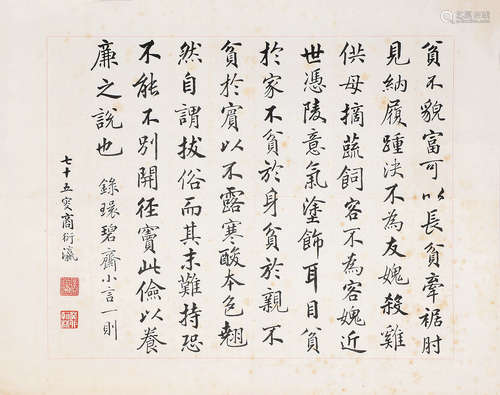 貧不貌富可以長貧牽裾肘
見納履踵決不為友媿殺雞
供母摘蔬飼客不為客媿近
世憑陵意氣塗飾耳目貧
於家不貧於身貧於親不
貧於賓以不露寒酸本色翹
然自謂拔俗而其末難持恐
不能不別開徑竇此儉以養
廉之說也 錄環碧齋小言一則
七十五叟商衍瀛